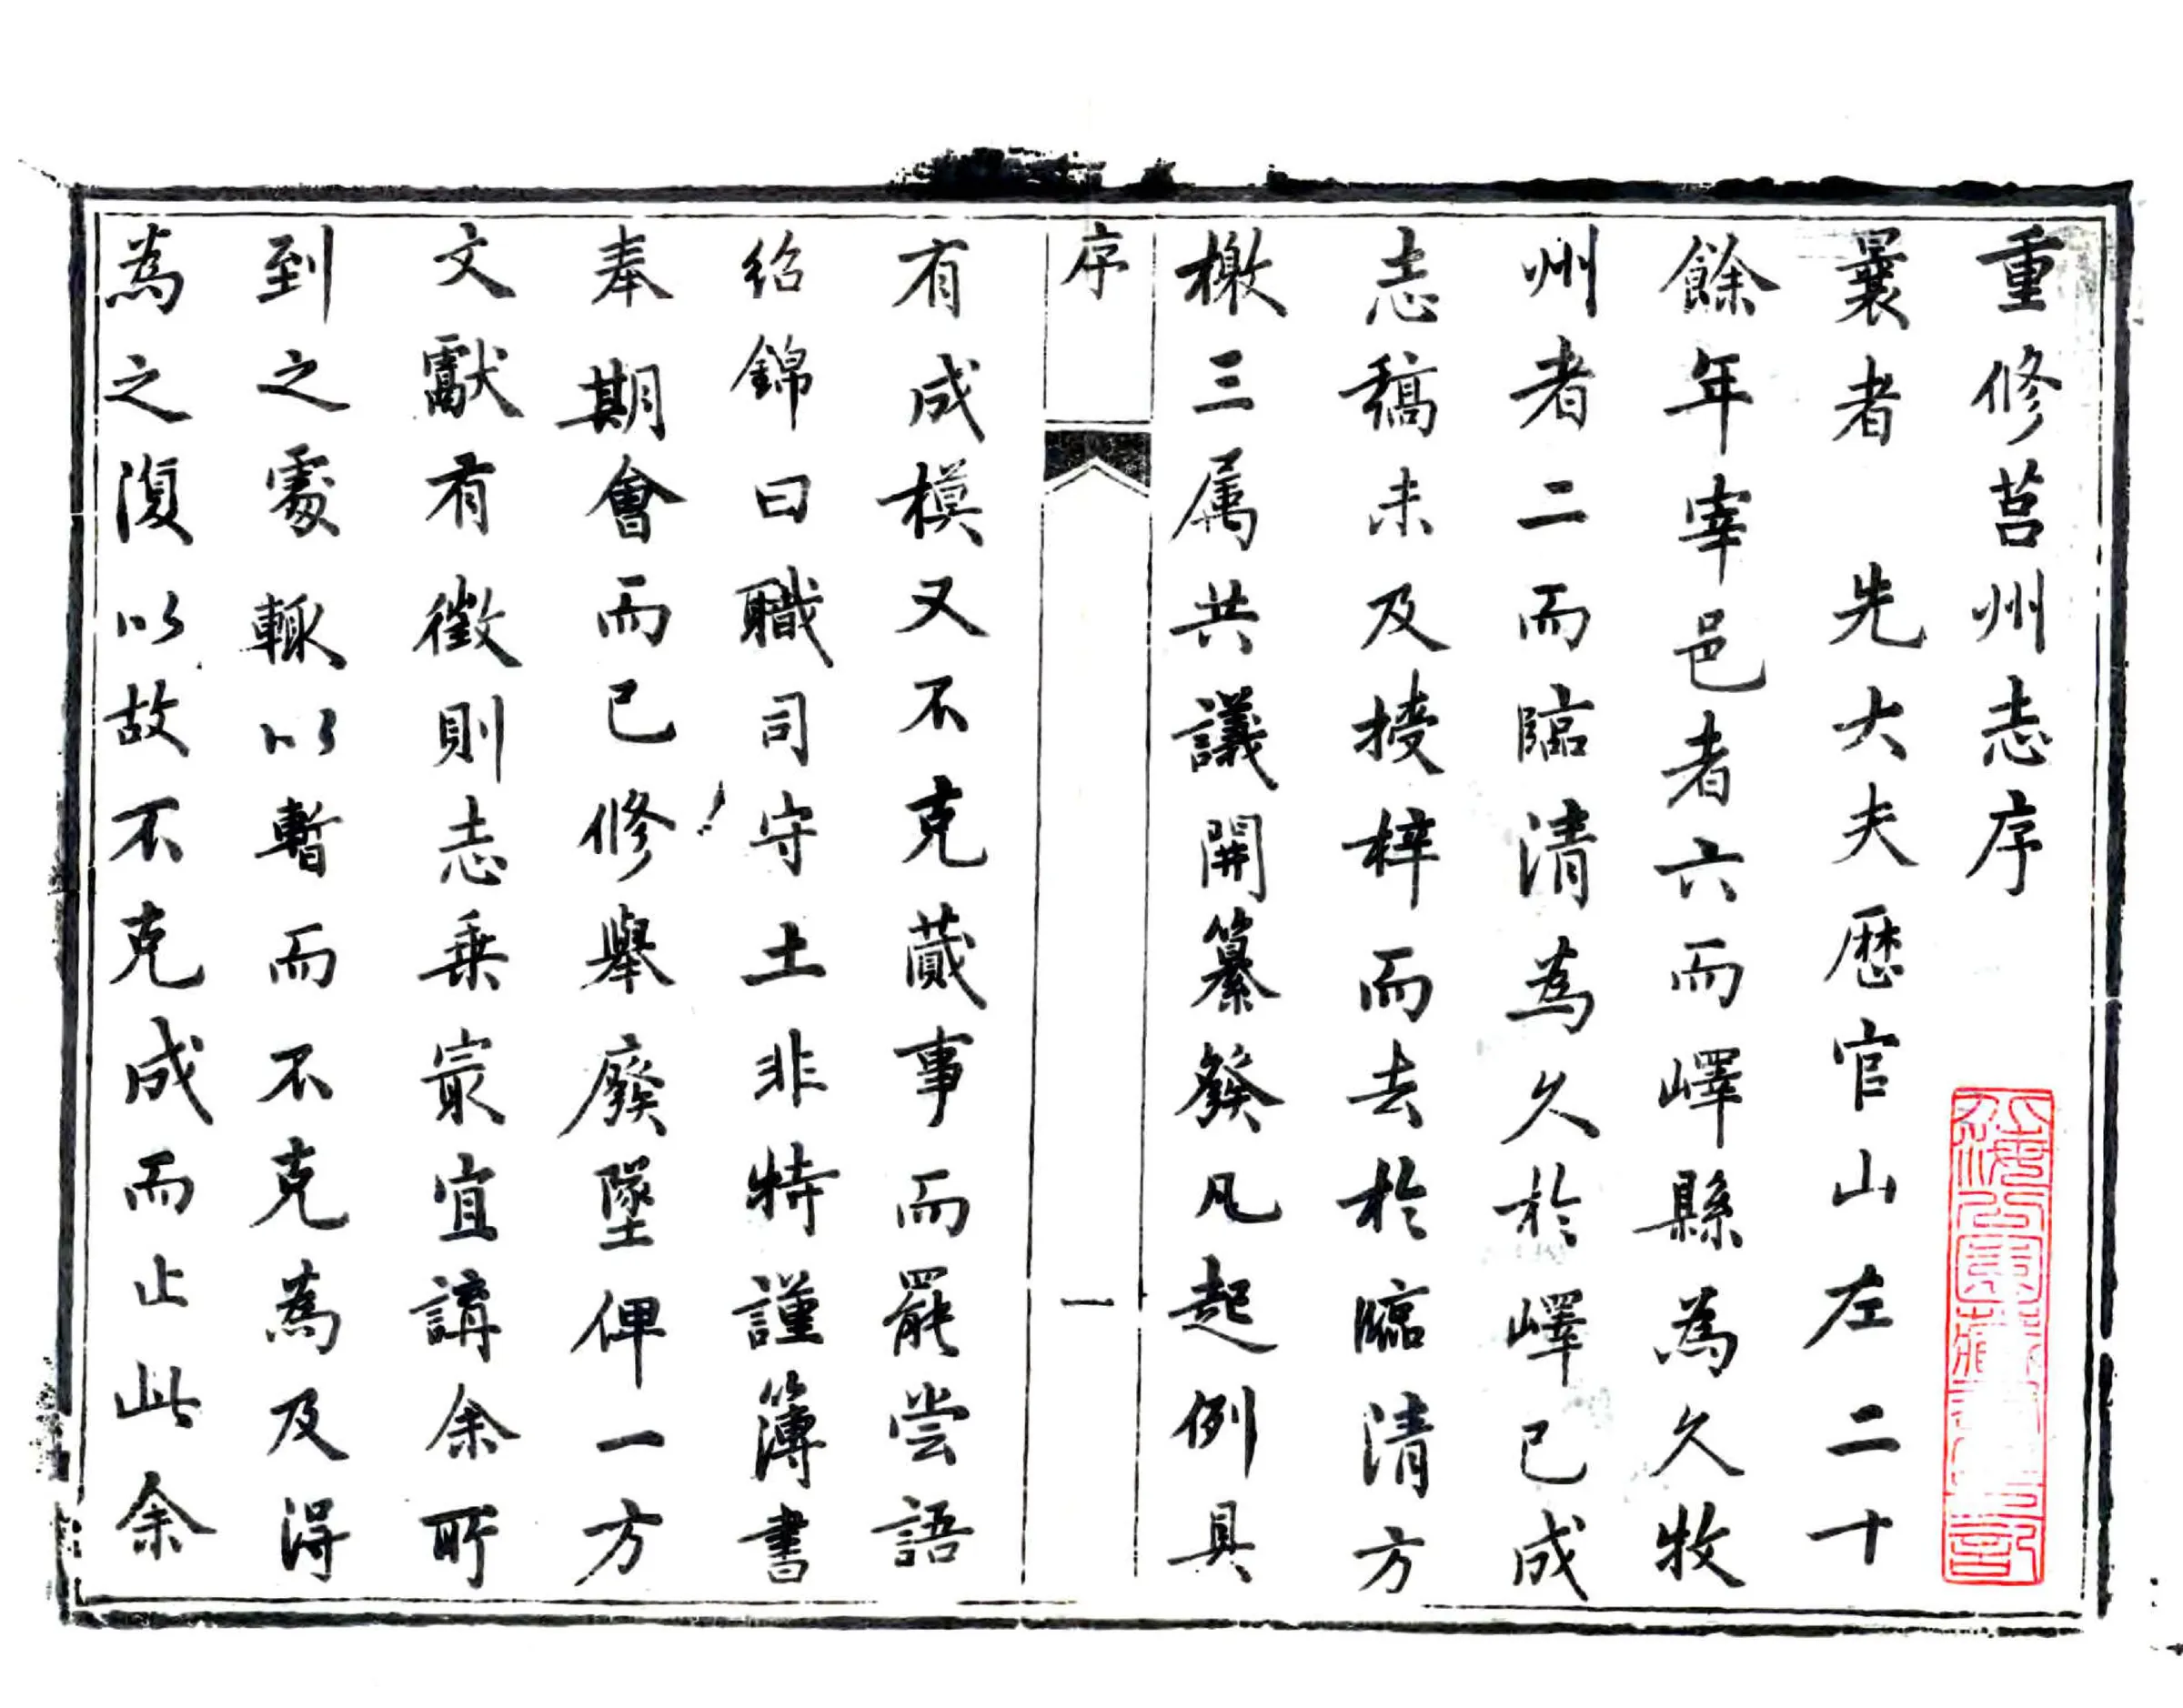 重修莒州志序
曩者　先大夫歷官山左二十
餘年宰邑者六而嶧縣為久牧
州者二而臨清為久於嶧已成
志稿未及授梓而去於臨清方
檄三属共議開纂發凡起例具
序
一
有成模又不克蕆事而罷嘗語
紹錦曰職司守土非特謹簿書
奉期會而已修舉廢墜俾一方
文獻有徵則志乗最宜講余所
到之處輒以暫而不克為及得
為之復以故不克成而止此余